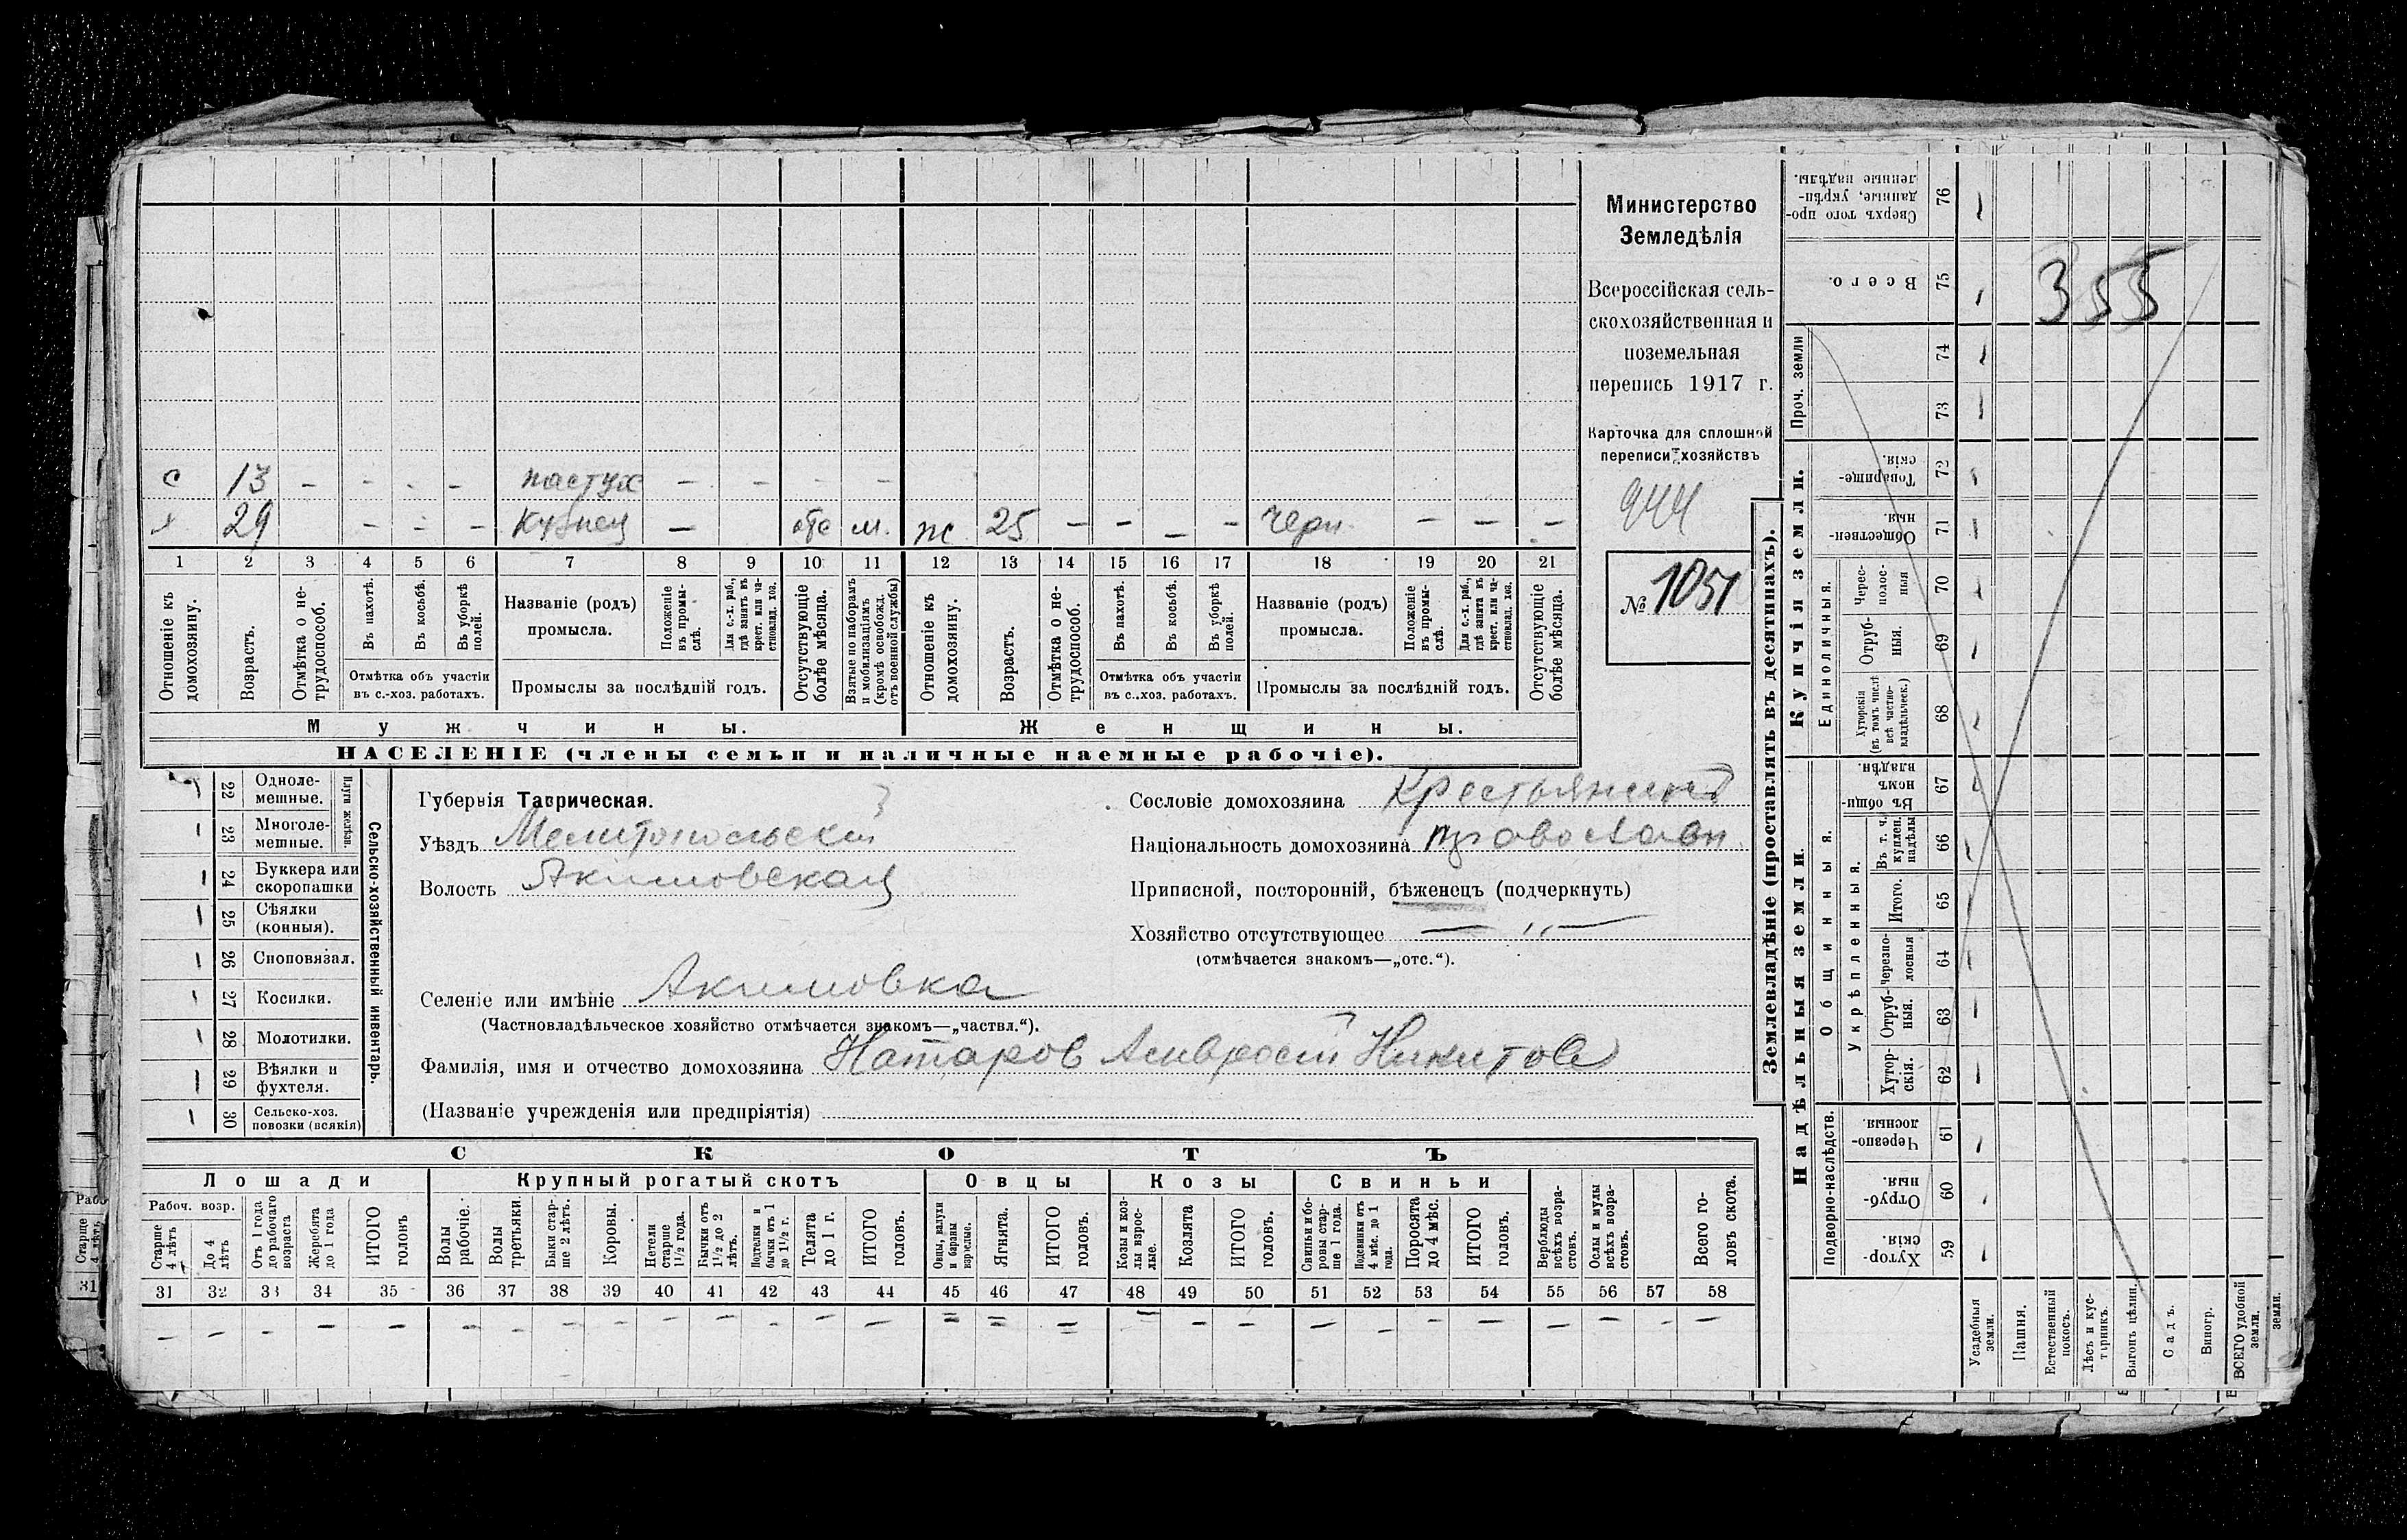 с 13 - - - - пастух - - - -
х 29 - - - Кузнец - отс м. ж 25 - - - - черн. - - -
1 2 3 4 5 6 7 8 9 10 11 12 13 14 15 16 17 18 19 20 21
Отношеніе къ домохозяину.
Возрастъ.
Отмѣтка о нетрудоспособ.
Въ пахотѣ.
Въ косьбѣ.
Въ уборкѣ полей.
Отмѣтка объ участіи
въ с.-хоз. работахъ.
Названіе (родъ)
промысла.
Положеніе въ промыслѣ.
Для с.-х. раб., гдѣ занятъ въ крест. или частновлад. хоз.
Промыслы за послѣдній годъ.
Отсутствующіе болѣе мѣсяца.
Взятые по наборамъ и мобилизаціямъ (кромѣ освобожд. отъ военной службы)
Отношеніе къ домохозяину.
Возрастъ.
Отмѣтка о нетрудоспособ.
Въ пахотѣ.
Въ косьбѣ.
Въ уборкѣ полей.
Отмѣтка объ участіи
въ с.-хоз. работахъ.
Названіе (родъ)
промысла.
Положеніе въ промыслѣ.
Для с.-х. раб., гдѣ занята въ крест. или частновлад. хоз.
Промыслы за послѣдній годъ.
Отсутствующіе болѣе мѣсяца.
Мужчины.
Женщины.
НАСЕЛЕНІЕ (члены семьи и наличные наемные рабочіе).
Министерство
Земледѣлія
Всероссійская сель-
скохозяйственная и
поземельная
перепись 1917 г.
Карточка для сплошной
переписи хозяйствъ
944
№ 1051
22 Одноле-
мешные.
23 Многоле-
мешные.
Плуги желѣзн.
24 Буккера или
скоропашки
25 Сѣялки
(конныя).
26 Сноповязал.
27 Косилки.
28 Молотилки.
29 Вѣялки и
фухтеля.
30 Сельско-хоз.
повозки (всякія)
Сельско-хозяйственный инвентарь.
Губернія Таврическая.
Уѣздъ Мелитопольскій
Волость Акимовская
Сословіе домохозяина Крестьянинъ
Національность домохозяина православн.
Приписной, посторонній, бѣженецъ (подчеркнуть)
Хозяйство отсутствующее — „ —
(отмѣчается знакомъ—„отс.“).
Селеніе или имѣніе Акимовка
(Частновладѣльческое хозяйство отмѣчается знакомъ—„частвл.“).
Фамилія, имя и отчество домохозяина Натаров Амвросій Никитов
(Названіе учрежденія или предпріятія)
СКОТЪ
Лошади
Крупный рогатый скотъ
Овцы
Козы
Свиньи
Рабоч. возр.
Старше 4 лѣтъ
До 4 лѣтъ
Отъ 1 года до рабочаго возраста
Жеребята до 1 года
ИТОГО головъ
Волы рабочіе.
Волы третьяки.
Быки старше 2 лѣтъ.
Коровы.
Нетели старше 1 1/2 года.
Бычки отъ 1 1/2 до 2 лѣтъ.
Подтелки и бычки отъ 1 до 1 1/2 г.
Телята до 1 г.
ИТОГО головъ.
Овцы, валухи и бараны взрослые.
Ягнята.
ИТОГО головъ.
Козы и козлы взрослые.
Козлята
ИТОГО головъ.
Свиньи и боровы старше 1 года.
Подсвинки отъ 4 мѣс. до 1 года.
Поросята до 4 мѣс.
ИТОГО головъ.
Верблюды всѣхъ возрастовъ.
Ослы и мулы всѣхъ возрастовъ.
Всего головъ скота.
31 32 33 34 35 36 37 38 39 40 41 42 43 44 45 46 47 48 49 50 51 52 53 54 55 56 57 58
Землевладѣніе (проставлять въ десятинахъ).
Купчія земли.
Надѣльныя земли
Сверхъ того проданные, укрѣпленные надѣлы. 76
Всего. 75
355
Проч. земли 74 73
Товарищескія. 72
Общественныя. 71
Единоличныя.
Черезполосныя 70
Отрубныя. 69
Хуторскія (въ томъ числѣ всѣ частновладѣльческ.) 68
Общинныя.
Въ общинномъ владѣн. 67
Укрѣпленныя.
Въ т. ч. куплен. надѣлы 66
Итого. 65
Черезполосныя 64
Отрубныя. 63
Хуторскія. 62
Подворно-наслѣдств.
Черезполосныя 61
Отрубныя. 60
Хуторскія. 59
Усадебныя земли.
Пашня.
Естественный покосъ.
Лѣсъ и кустарникъ.
Выгонъ цѣлин.
Садъ.
Виногр.
ВСЕГО удобной земли.
Старше 4 лѣтъ
31